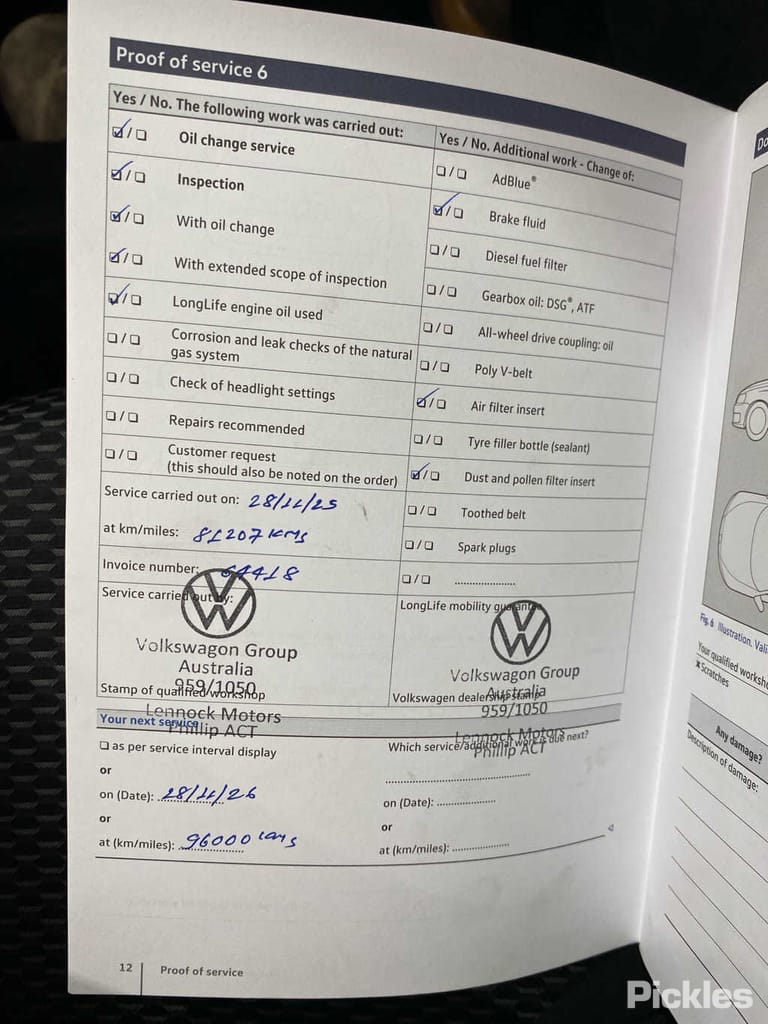 Proof of service 6
Yes / No. The following work was carried out:
☑/☐ Oil change service
☑/☐ Inspection
☑/☐ With oil change
☑/☐ With extended scope of inspection
☑/☐ LongLife engine oil used
☐/☐ Corrosion and leak checks of the natural
gas system
☐/☐ Check of headlight settings
☐/☐ Repairs recommended
☐/☐ Customer request
(this should also be noted on the order)
Service carried out on: 28/11/25
at km/miles: 81207 KMS
Invoice number: 64418
Service carried out by:
Volkswagen Group
Australia
959/1050
Stamp of qualified workshop
Lennock Motors
Phillip ACT
Yes / No. Additional work - Change of:
☐/☐ AdBlue®
☑/☐ Brake fluid
☐/☐ Diesel fuel filter
☐/☐ Gearbox oil: DSG®, ATF
☐/☐ All-wheel drive coupling: oil
☐/☐ Poly V-belt
☑/☐ Air filter insert
☐/☐ Tyre filler bottle (sealant)
☑/☐ Dust and pollen filter insert
☐/☐ Toothed belt
☐/☐ Spark plugs
☐/☐ ....................
LongLife mobility guarantee
Volkswagen Group
Australia
Volkswagen dealership stamp
959/1050
Lennock Motors
Phillip ACT
Your next service
☐ as per service interval display
or
on (Date): 28/11/26
or
at (km/miles): 96000 kms
Which service/additional work is due next?
on (Date): ....................
or
at (km/miles): ....................
12 Proof of service
Do
Fig. 6 Illustration. Vali
Your qualified worksho
x Scratches
Any damage?
Description of damage:
Pickles